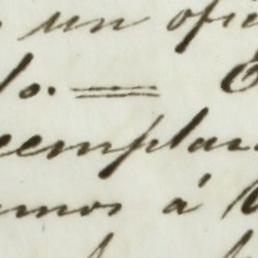 un ofi
lo. =
eemplar
emos á